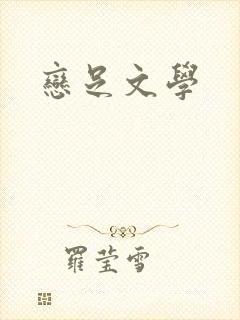 戀足文學
羅莹雪